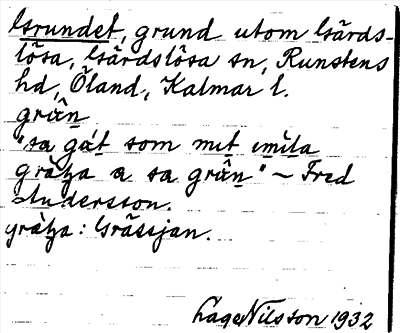 Grundet, grund utom Gärds-
lösa, Gärdslösa sn, Runstens
hd, Öland, Kalmar l.
grän
"sa gat som mit imila
grätja a sa grän" ~ Fred
Andersson.
grätja: Grässjan.
Låge Nilsson 1932